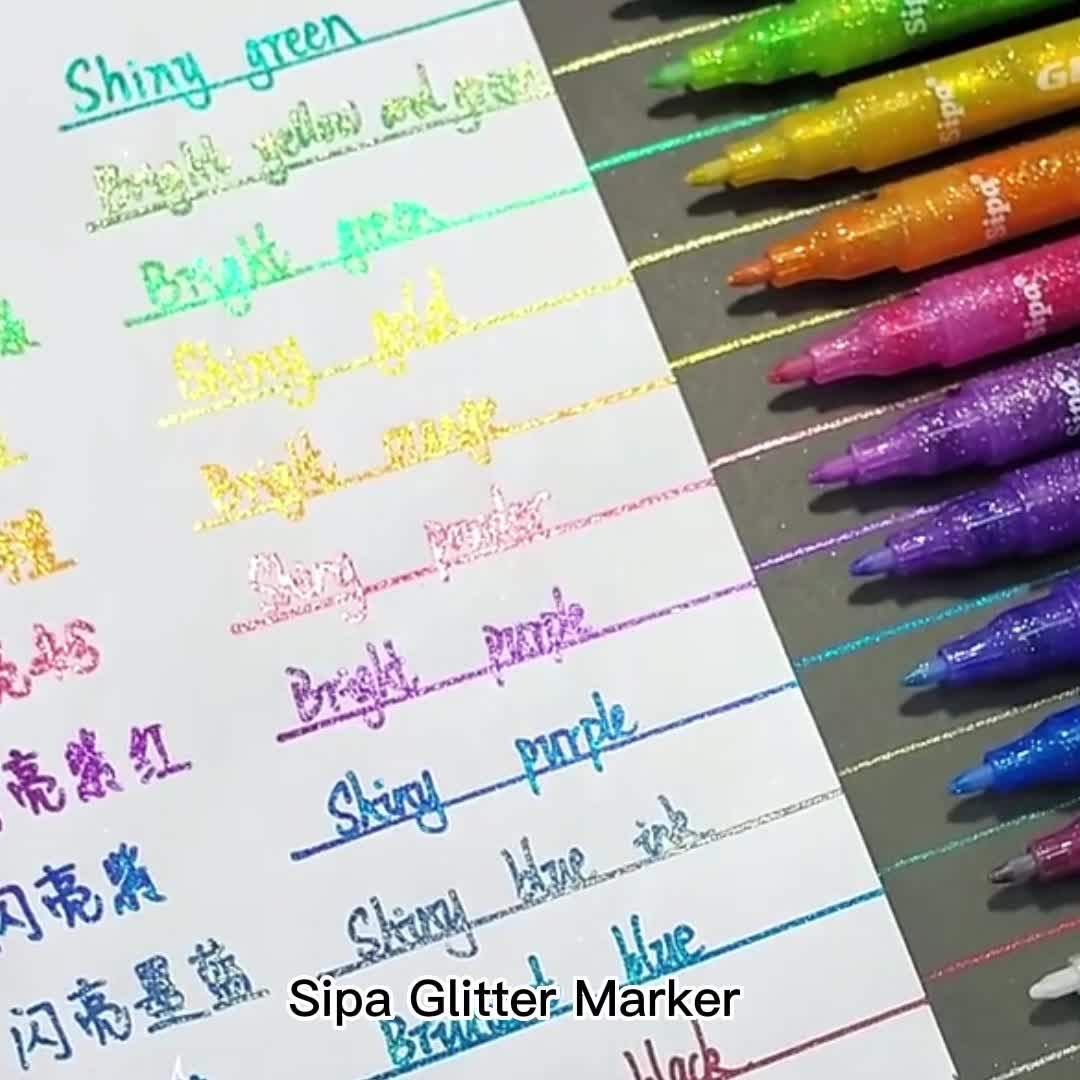 Shiny green
Bright yellow and green
Bright green
Shiny gold
Bright orange
Shiny powder
Bright purple
亮紫红
Shiny purple
闪亮紫
Shiny blue ink
闪亮墨蓝
blue
black
Sipa Glitter Marker
Sipa
Sipa
Sipa
Sipa